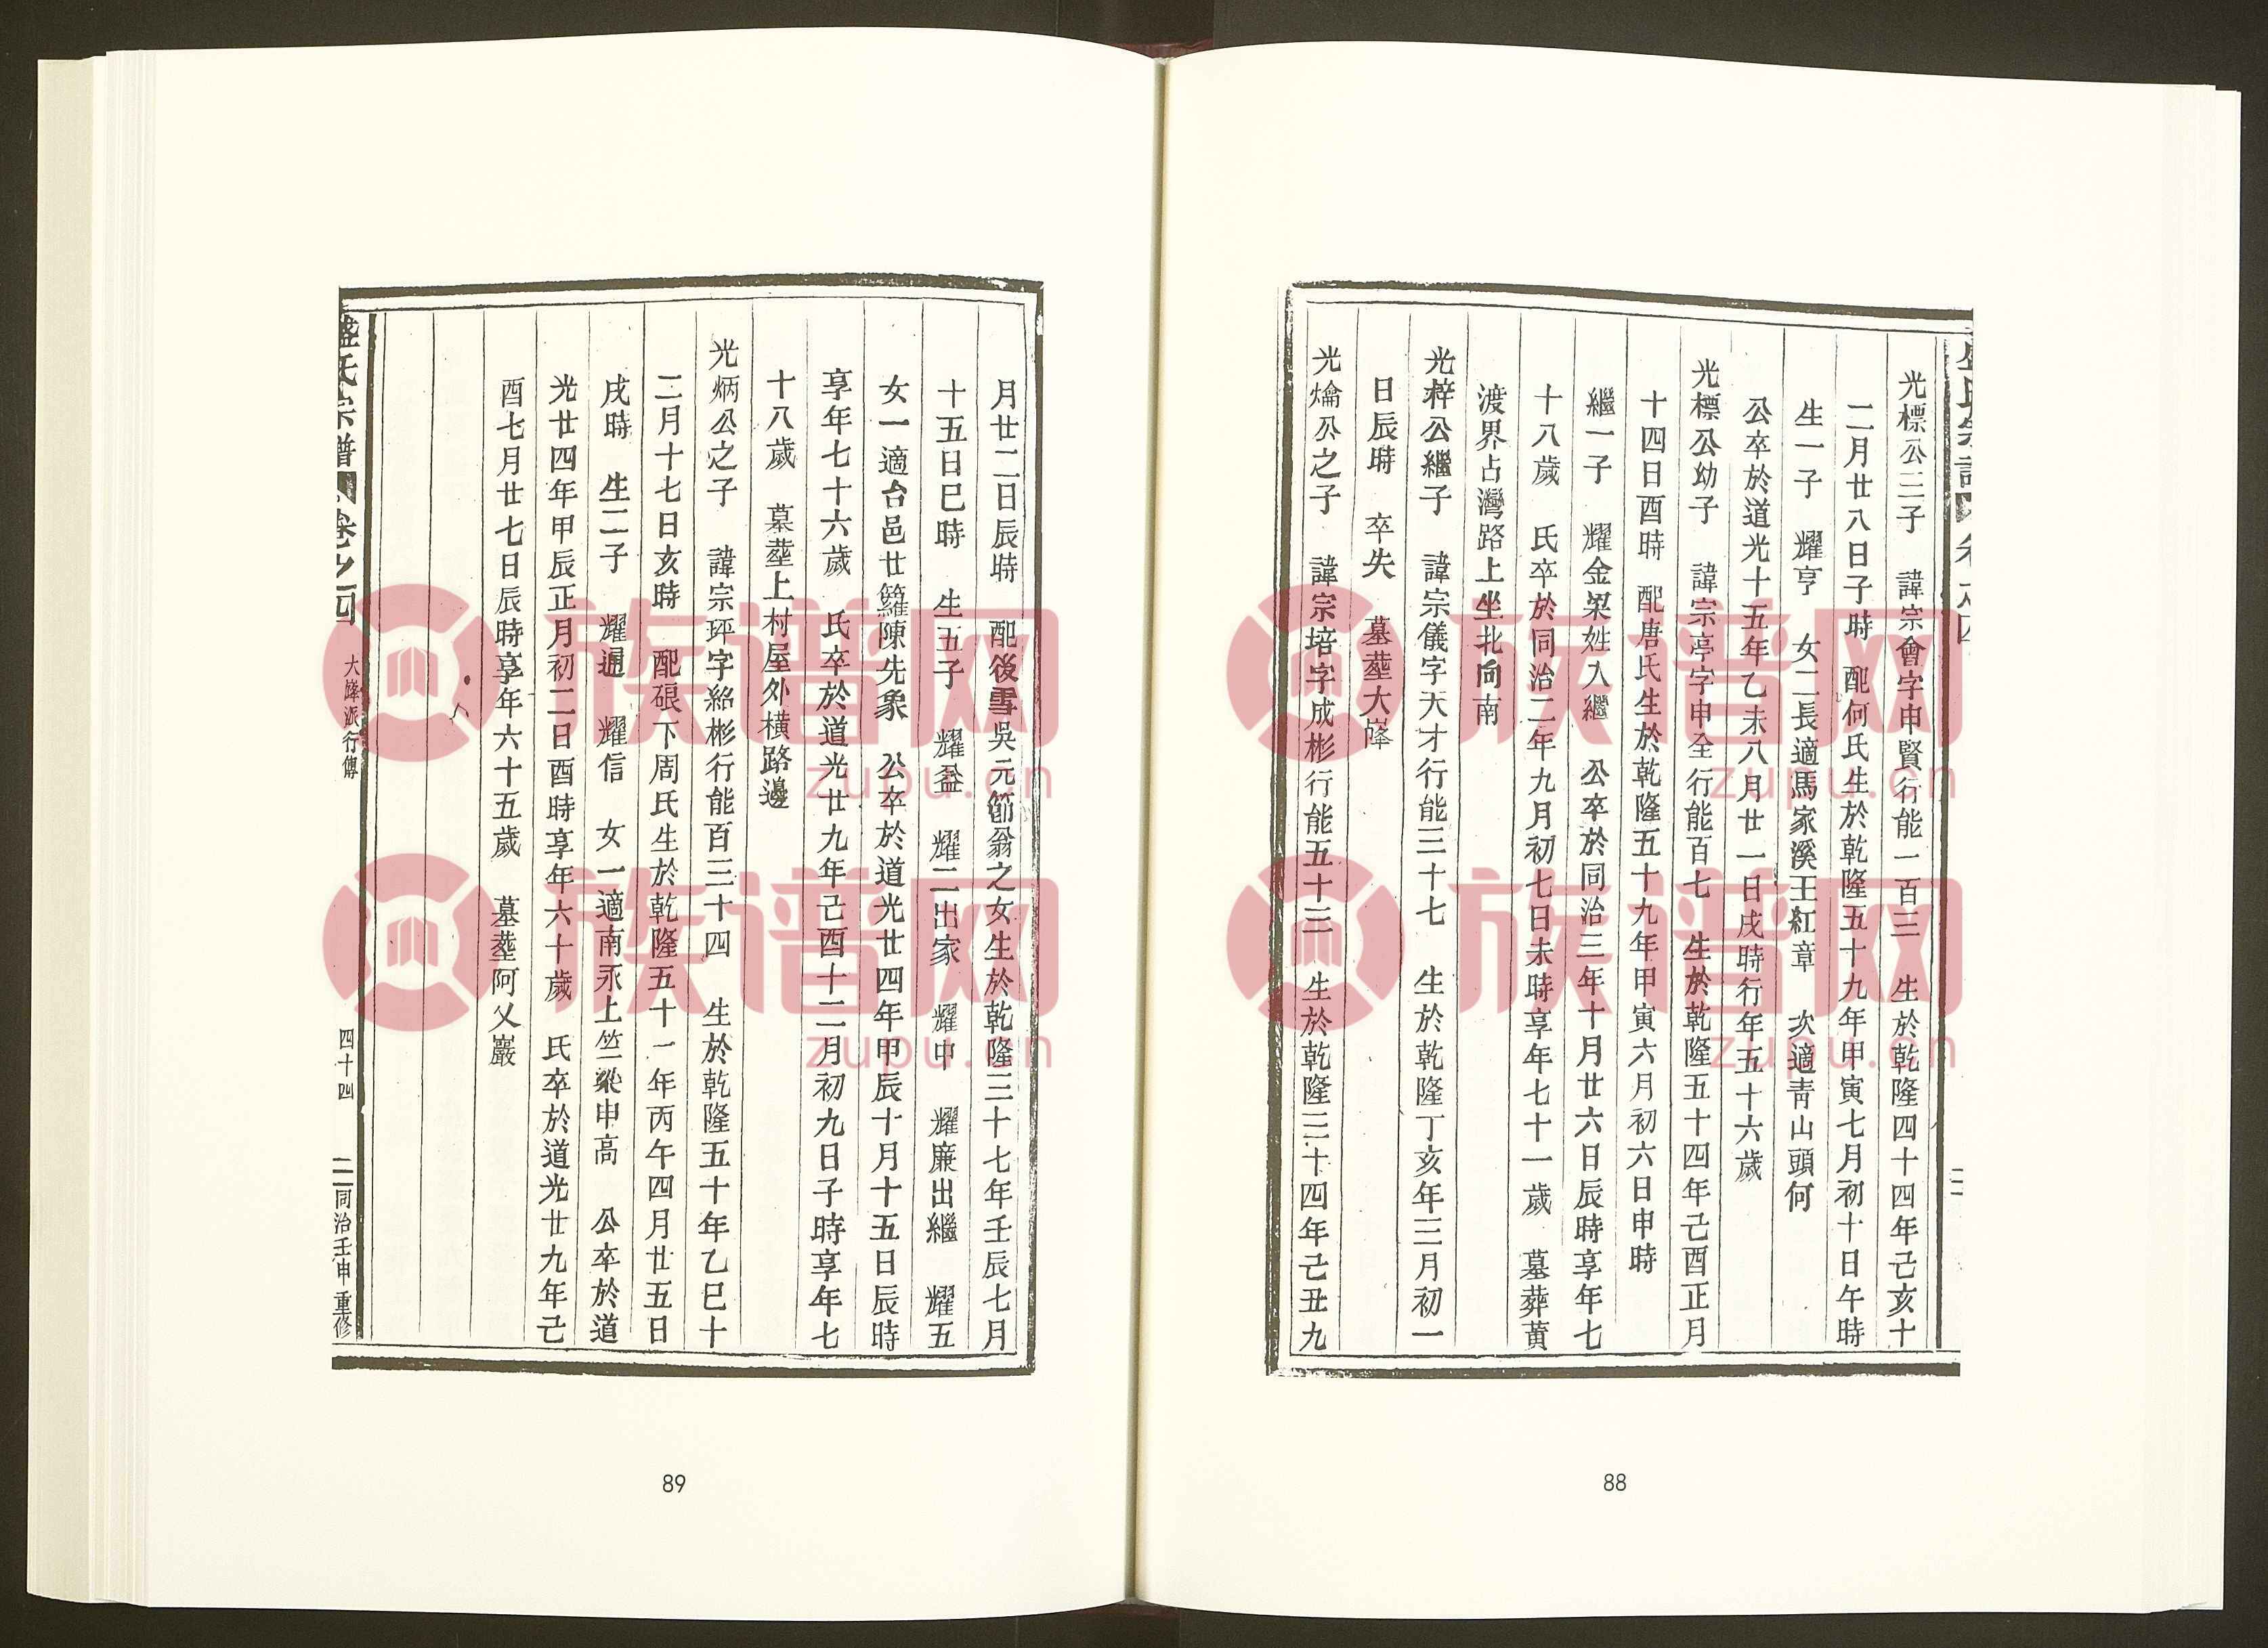 光標公三子 諱宗會字申賢行能一百三 生於乾隆四十四年己亥十
二月廿八日子時 配何氏生於乾隆五十九年甲寅七月初十日午時
生一子 耀亨 女二長適馬家溪王紅章 次適青山頭何
公卒於道光十五年乙未八月廿一日戌時行年五十六歲
光標公幼子 諱宗亭字申全行能百七 生於乾隆五十四年己酉正月
十四日酉時 配唐氏生於乾隆五十九年甲寅六月初六日申時
繼一子 耀金梁姓入繼 公卒於同治三年十月廿六日辰時享年七
十八歲 氏卒於同治二年九月初七日未時享年七十一歲 墓葬黄
渡界占灣路上坐北向南
光梓公繼子 諱宗儀字天才行能三十七 生於乾隆丁亥年三月初一
日辰時 卒失 墓塟大
光爚公之子 諱宗培字成彬行能五十三 生於乾隆三十四年己丑九
88
月廿二日辰時 配後雪吳元節翁之女生於乾隆三十七年壬辰七月
十五日巳時 生五子 耀益 耀二出家 耀中 耀廉出繼 耀五
女一適台邑廿籮陳先象 公卒於道光廿四年甲辰十月十五日辰時
享年七十六歲 氏卒於道光廿九年己酉十二月初九日子時享年七
十八歲 墓塟上村屋外横路邊
光炳公之子 諱宗玶字紹彬行能百三十四 生於乾隆五十年乙巳十
二月十七日亥時 配硍下周氏生於乾隆五十一年丙午四月廿五日
戌時 生二子 耀通 耀信 女一適南永上竺梁申高 公卒於道
光廿四年甲辰正月初二日酉時享年六十歲 氏卒於道光廿九年己
酉七月廿七日辰時享年六十五歲 墓塟阿乂巖
盛氏宗譜 卷之四 大 派行傳 四十四 同治壬申重修
89
族谱网
zupu.cn
族谱网
zupu.cn
族谱网
zupu.cn
族谱网
zupu.cn